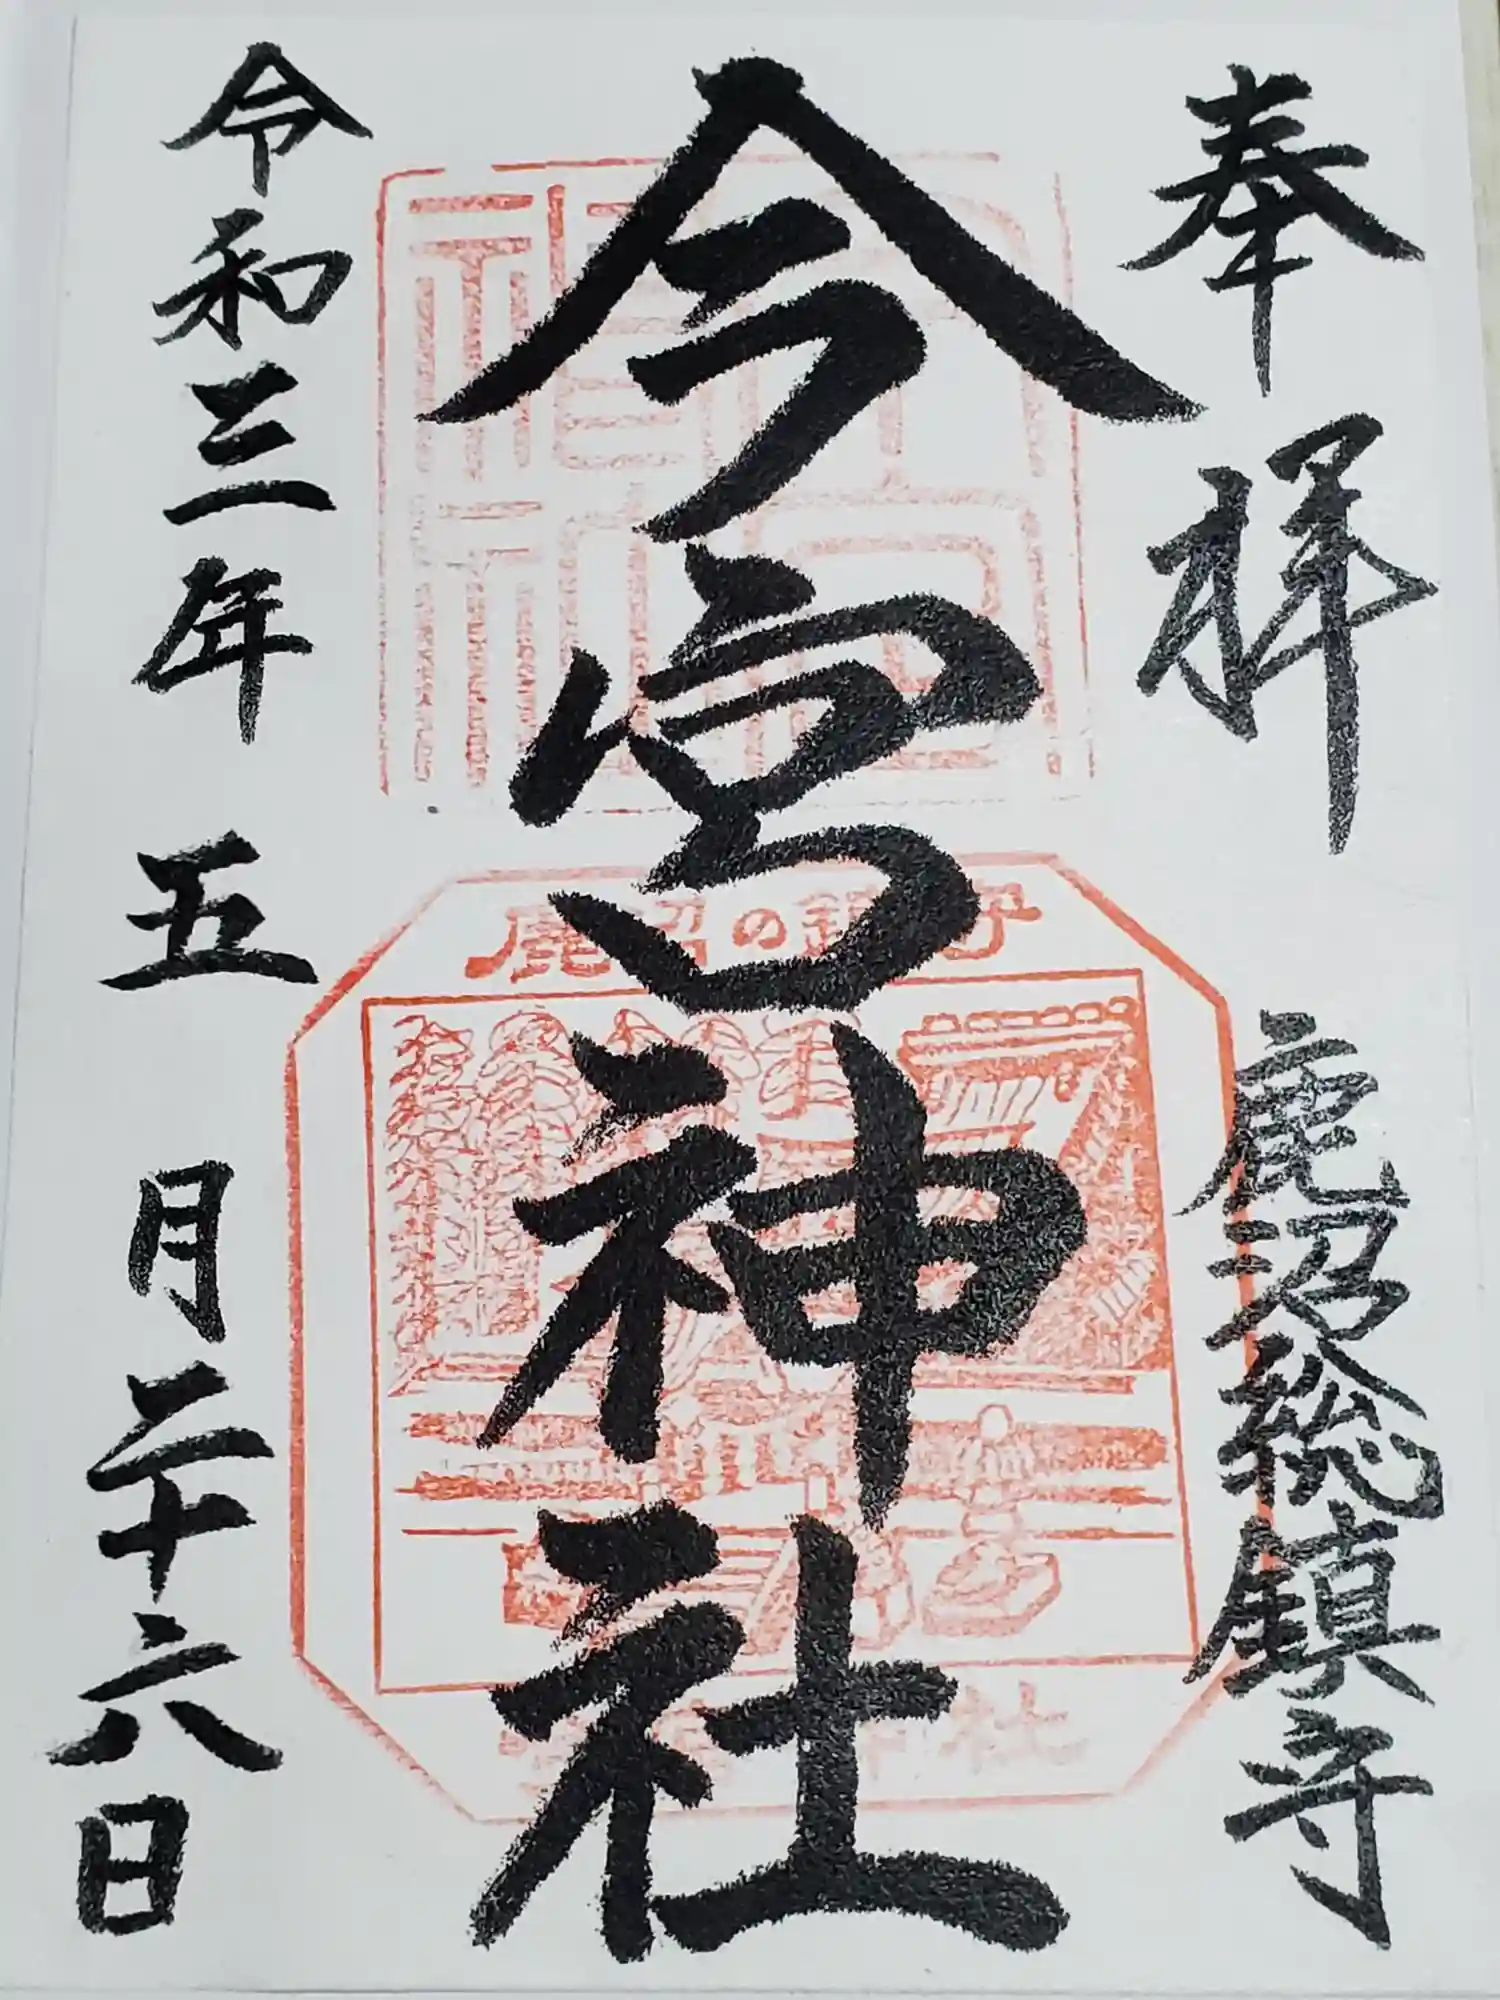 奉拝
鹿沼総鎮守
今宮神社
鹿沼の鎮守
令和三年五月二十六日